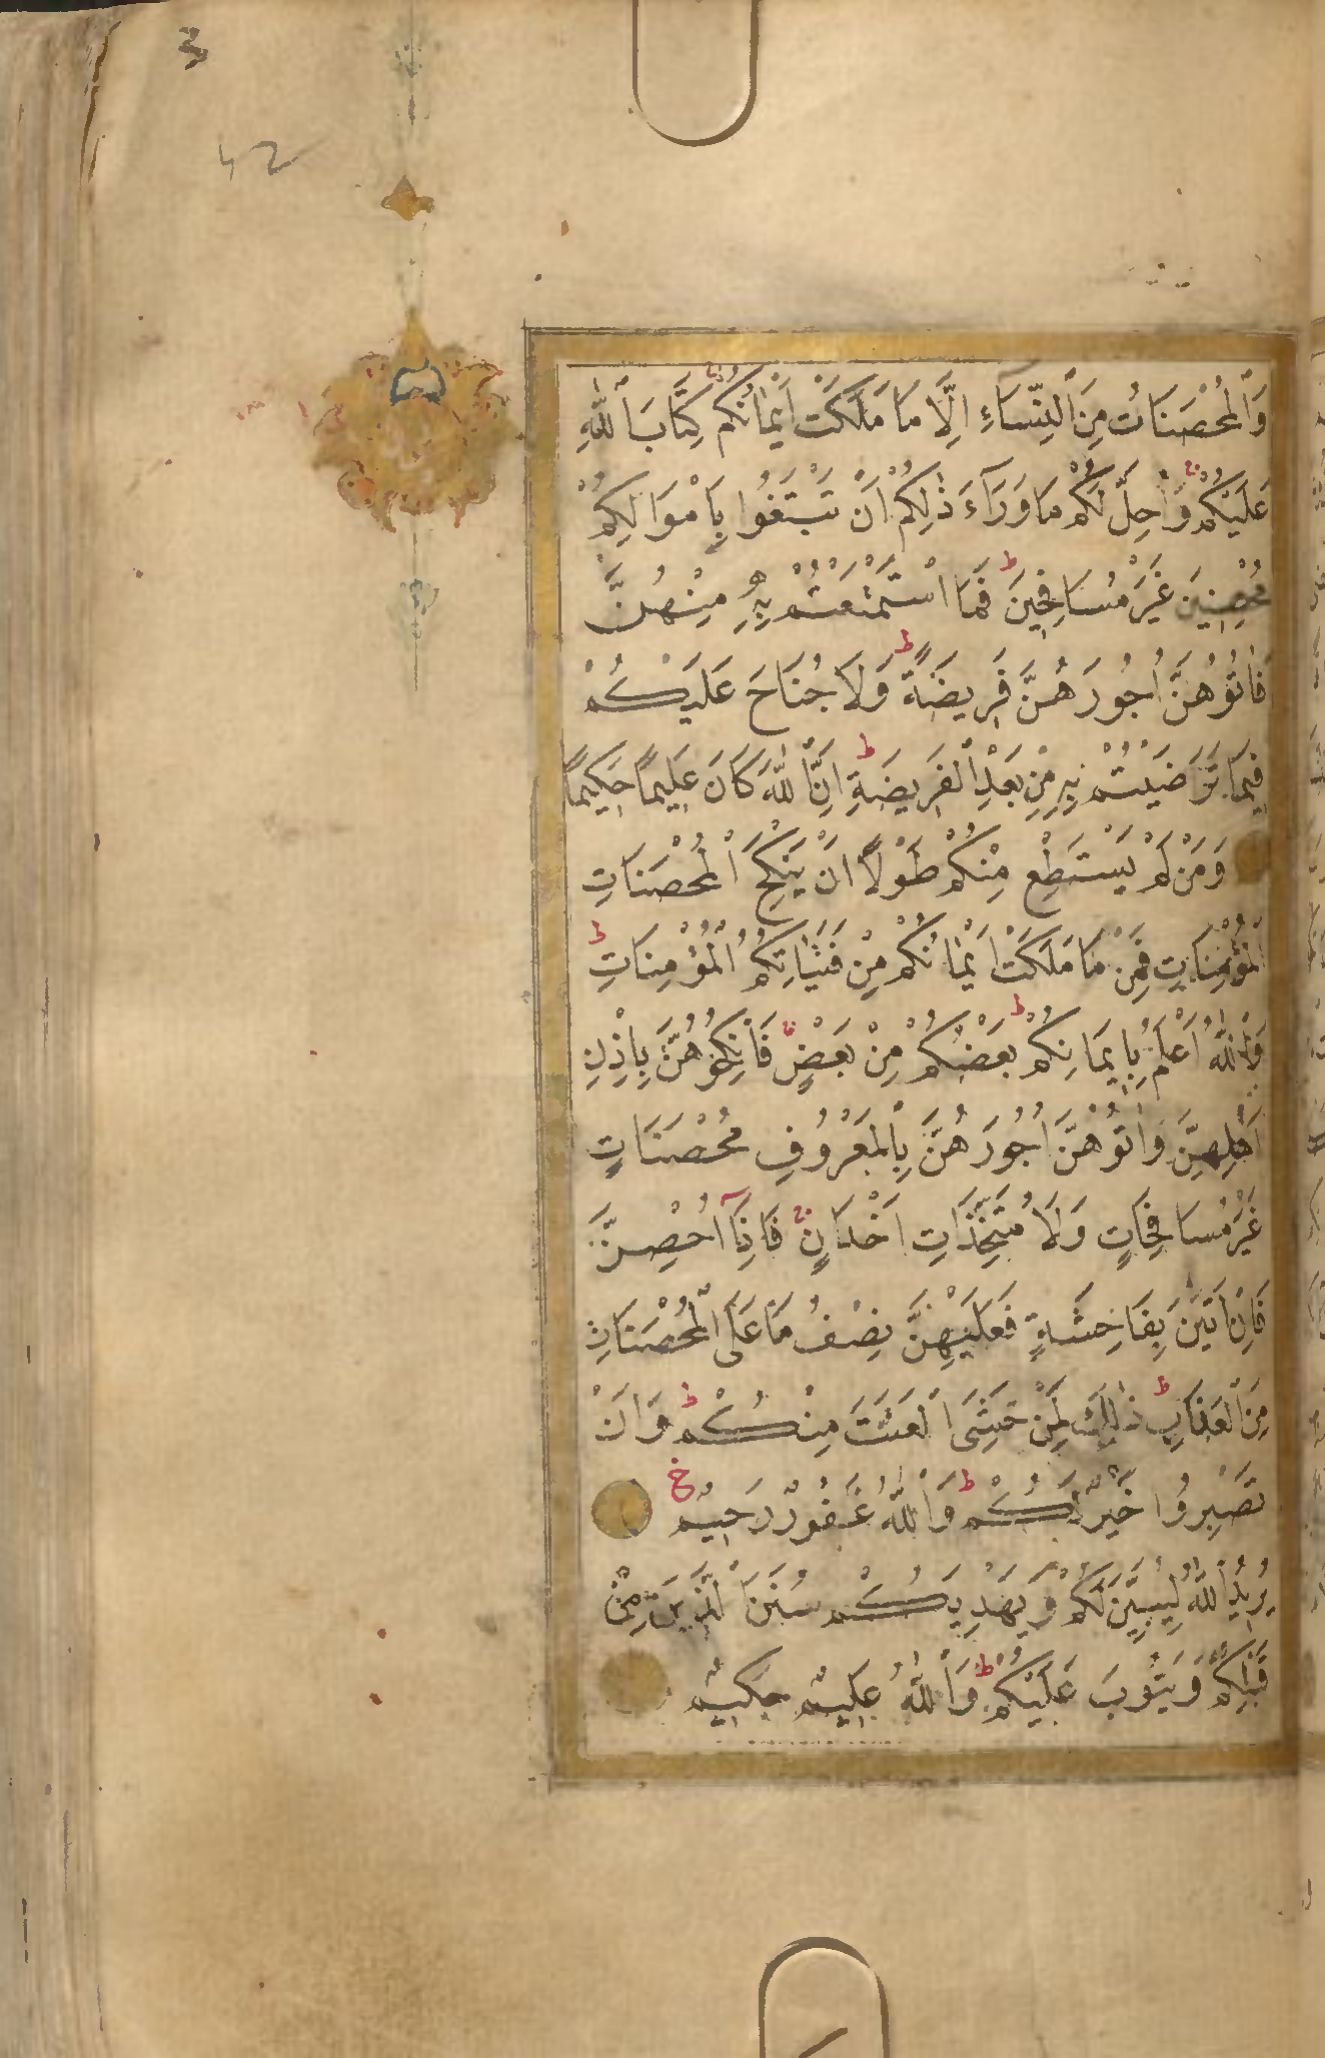 3
42
وَٱلْمُحْصَنَاتُ مِنَ ٱلنِّسَاءِ اِلَّا مَا مَلَكَتْ اَيْمَانُكُمْ كِتَابَ ٱللّٰهِ
عَلَيْكُمْ وَاُحِلَّ لَكُمْ مَا وَرَآءَ ذٰلِكُمْ اَنْ تَبْتَغُوا بِاَمْوَالِكُمْ
مُحْصِنِينَ غَيْرَ مُسَافِحِينَ ط فَمَا اسْتَمْتَعْتُمْ بِهِ مِنْهُنَّ
فَاٰتُوهُنَّ اُجُورَهُنَّ فَرِيضَةً ط وَلَا جُنَاحَ عَلَيْكُمْ
فِيمَا تَرَاضَيْتُمْ بِهِ مِنْ بَعْدِ ٱلْفَرِيضَةِ ط اِنَّ ٱللّٰهَ كَانَ عَلِيمًا حَكِيمًا
وَمَنْ لَمْ يَسْتَطِعْ مِنْكُمْ طَوْلًا اَنْ يَنْكِحَ ٱلْمُحْصَنَاتِ
ٱلْمُؤْمِنَاتِ فَمِنْ مَا مَلَكَتْ اَيْمَانُكُمْ مِنْ فَتَيَاتِكُمُ ٱلْمُؤْمِنَاتِ ط
وَٱللّٰهُ اَعْلَمُ بِاِيمَانِكُمْ ط بَعْضُكُمْ مِنْ بَعْضٍ فَانْكِحُوهُنَّ بِاِذْنِ
اَهْلِهِنَّ وَاٰتُوهُنَّ اُجُورَهُنَّ بِٱلْمَعْرُوفِ مُحْصَنَاتٍ
غَيْرَ مُسَافِحَاتٍ وَلَا مُتَّخِذَاتِ اَخْدَانٍ فَاِذَآ اُحْصِنَّ
فَاِنْ اَتَيْنَ بِفَاحِشَةٍ فَعَلَيْهِنَّ نِصْفُ مَا عَلَى ٱلْمُحْصَنَاتِ
مِنَ ٱلْعَذَابِ ط ذٰلِكَ لِمَنْ خَشِيَ ٱلْعَنَتَ مِنْكُمْ ط وَاَنْ
تَصْبِرُوا خَيْرٌ لَكُمْ ط وَٱللّٰهُ غَفُورٌ رَحِيمٌ
يُرِيدُ ٱللّٰهُ لِيُبَيِّنَ لَكُمْ وَيَهْدِيَكُمْ سُنَنَ ٱلَّذِينَ مِنْ
قَبْلِكُمْ وَيَتُوبَ عَلَيْكُمْ ط وَٱللّٰهُ عَلِيمٌ حَكِيمٌ